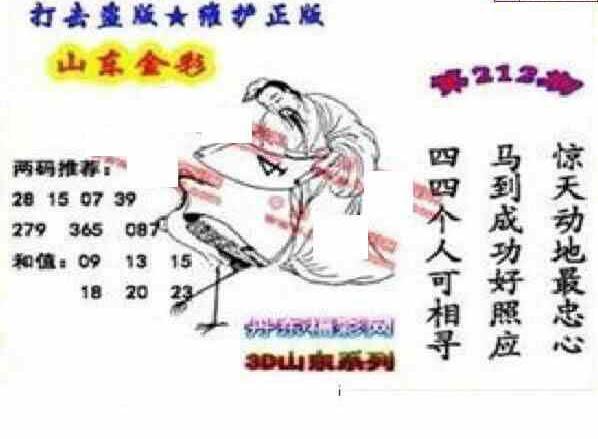 打击盗版★维护正版
山东金彩
第212期
两码推荐：
28 15 07 39
279 365 087
和值：09 13 15
18 20 23
惊天动地最忠心
马到成功好照应
四四个人可相寻
3D山东系列